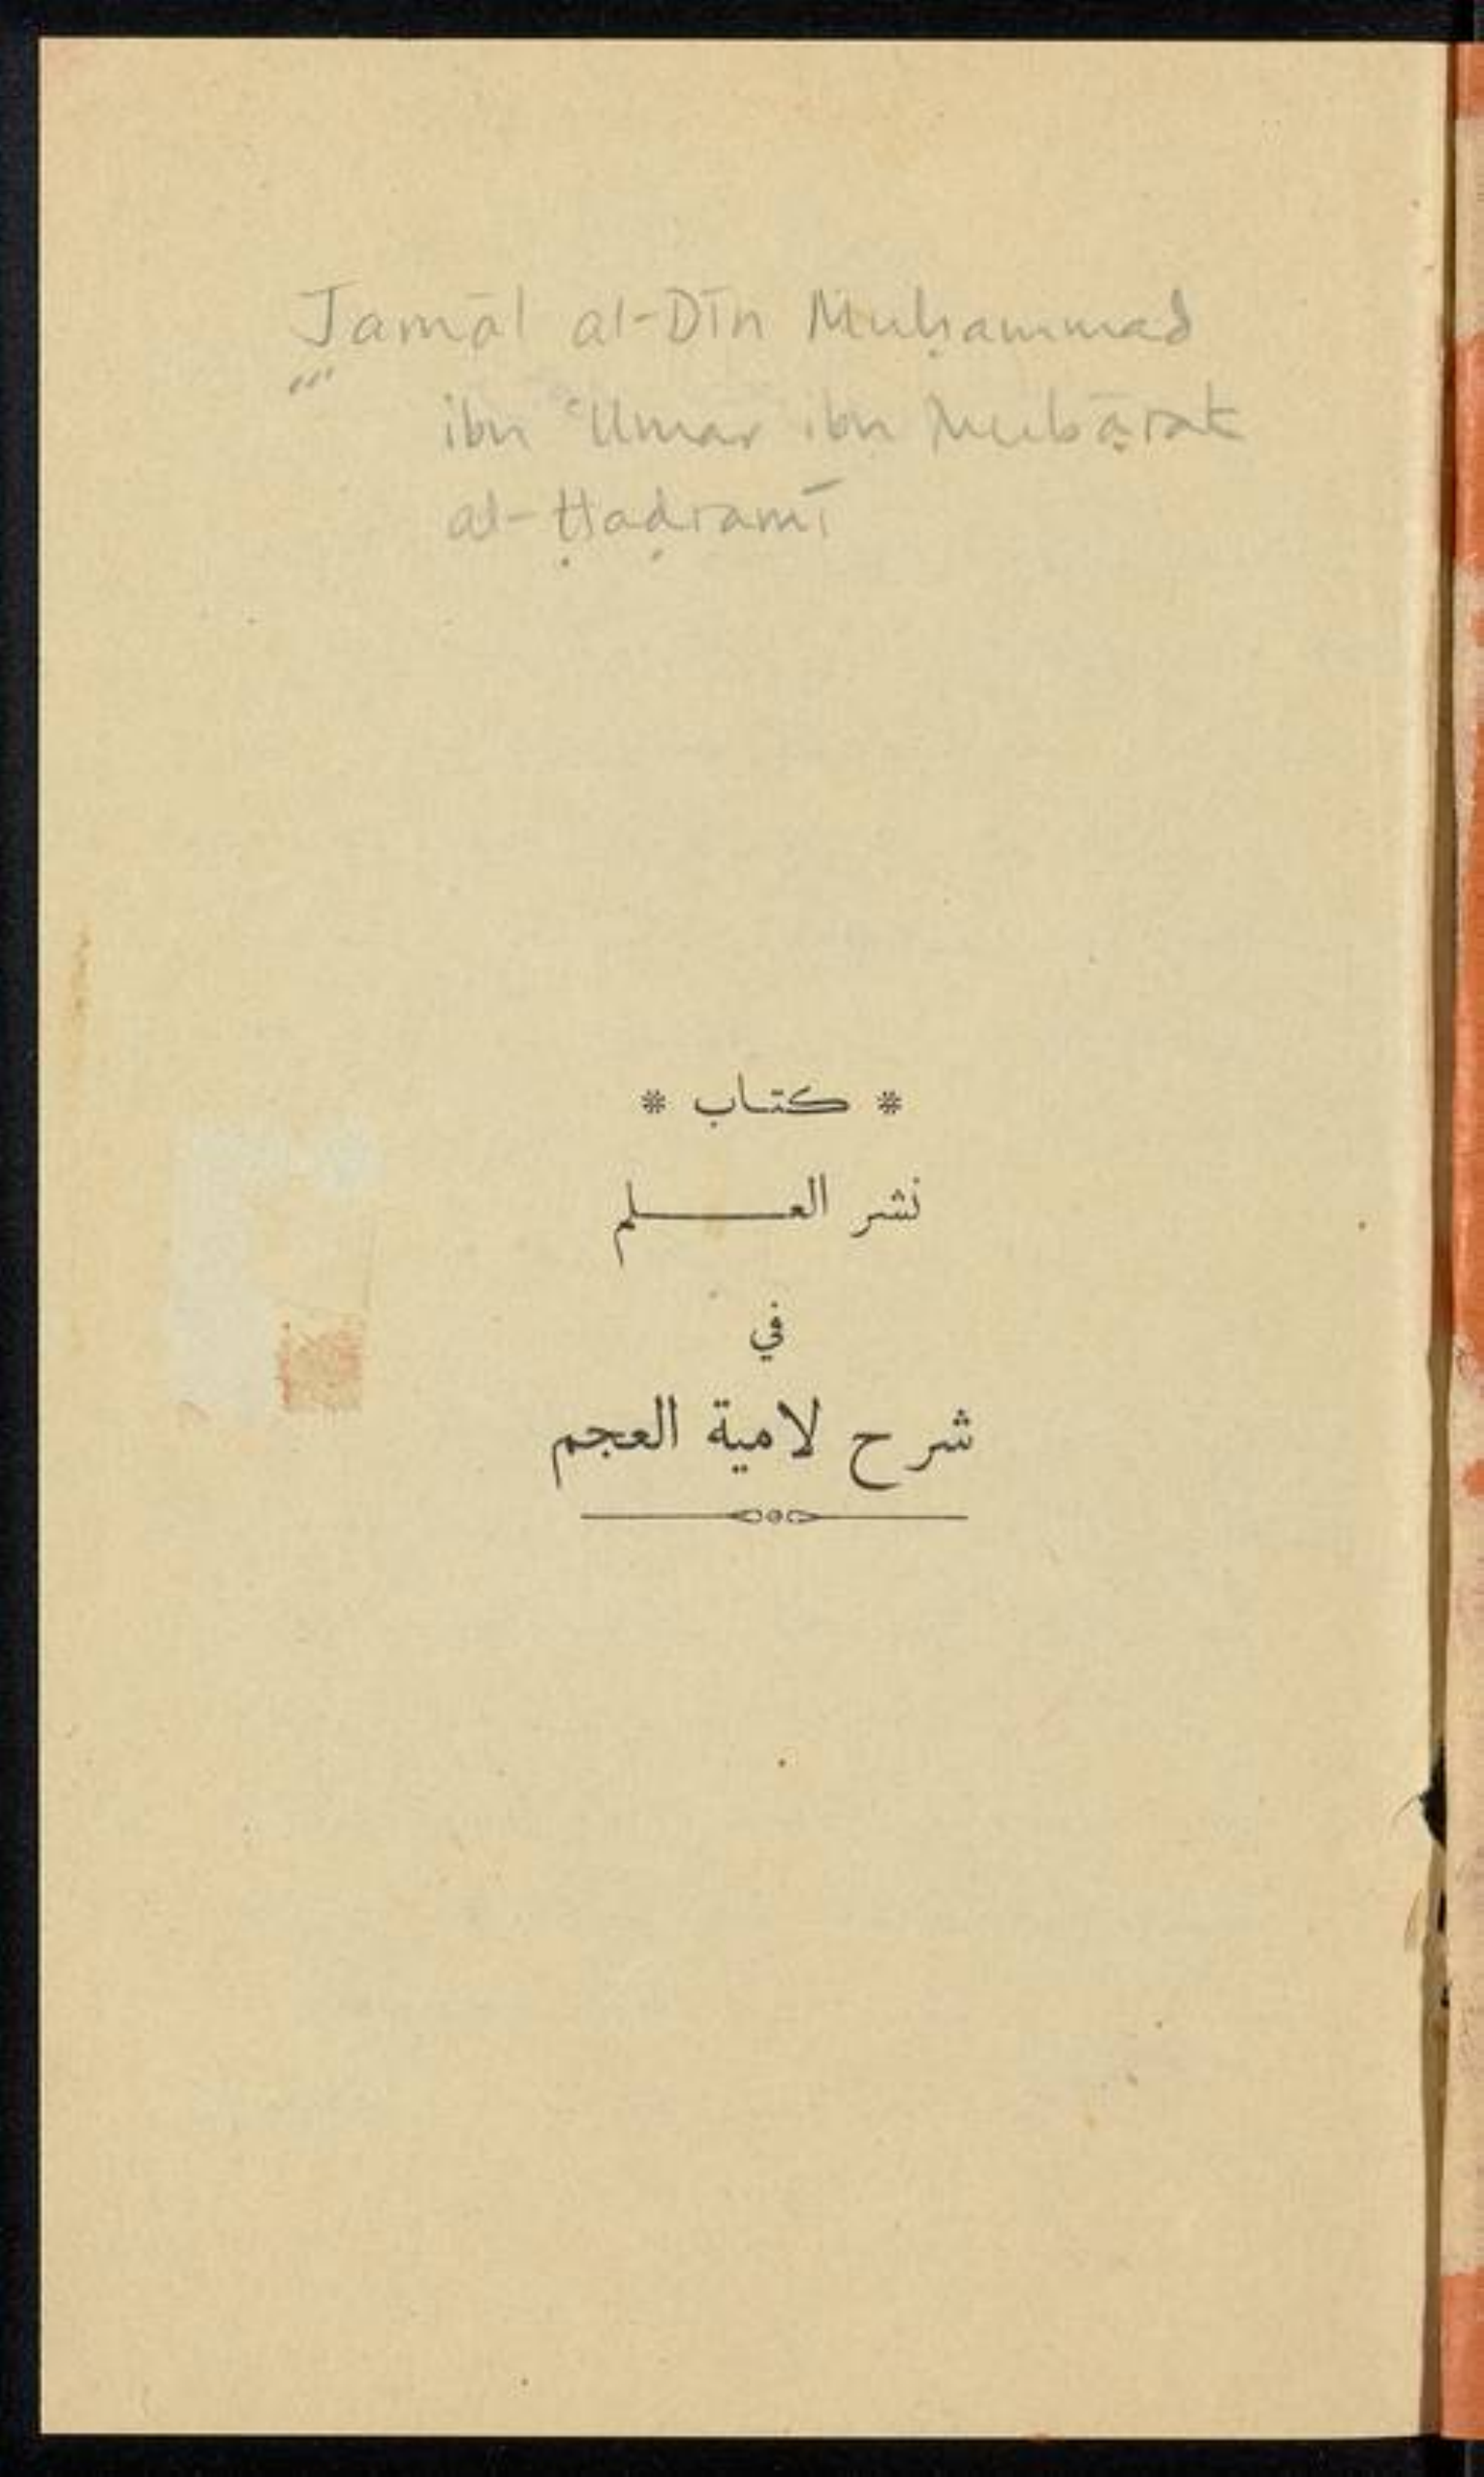 Jamāl al-Dīn Muḥammad
ibn ʿUmar ibn Mubārak
al-Ḥaḍramī
* كتاب *
نشر العلم
في
شرح لامية العجم